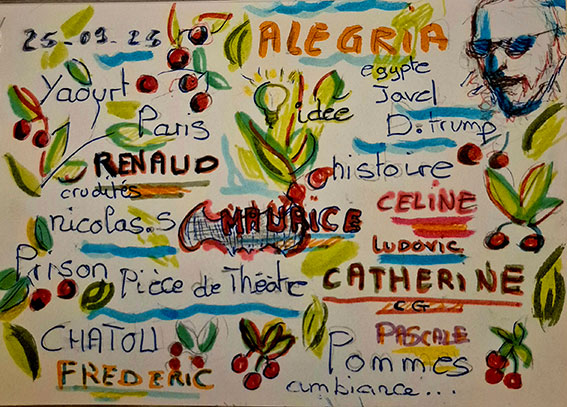 25-09-25
ALEGRIA
Yaourt
egypte
idée
Javel
Paris
D.trump
RENAUD
histoire
crudités
CELINE
nicolas.s
MAURICE
LUDOVIC
Prison
Pièce de Théatre
CATHERINE
CG
CHATOU
PASCALE
FREDERIC
Pommes
ambiance...